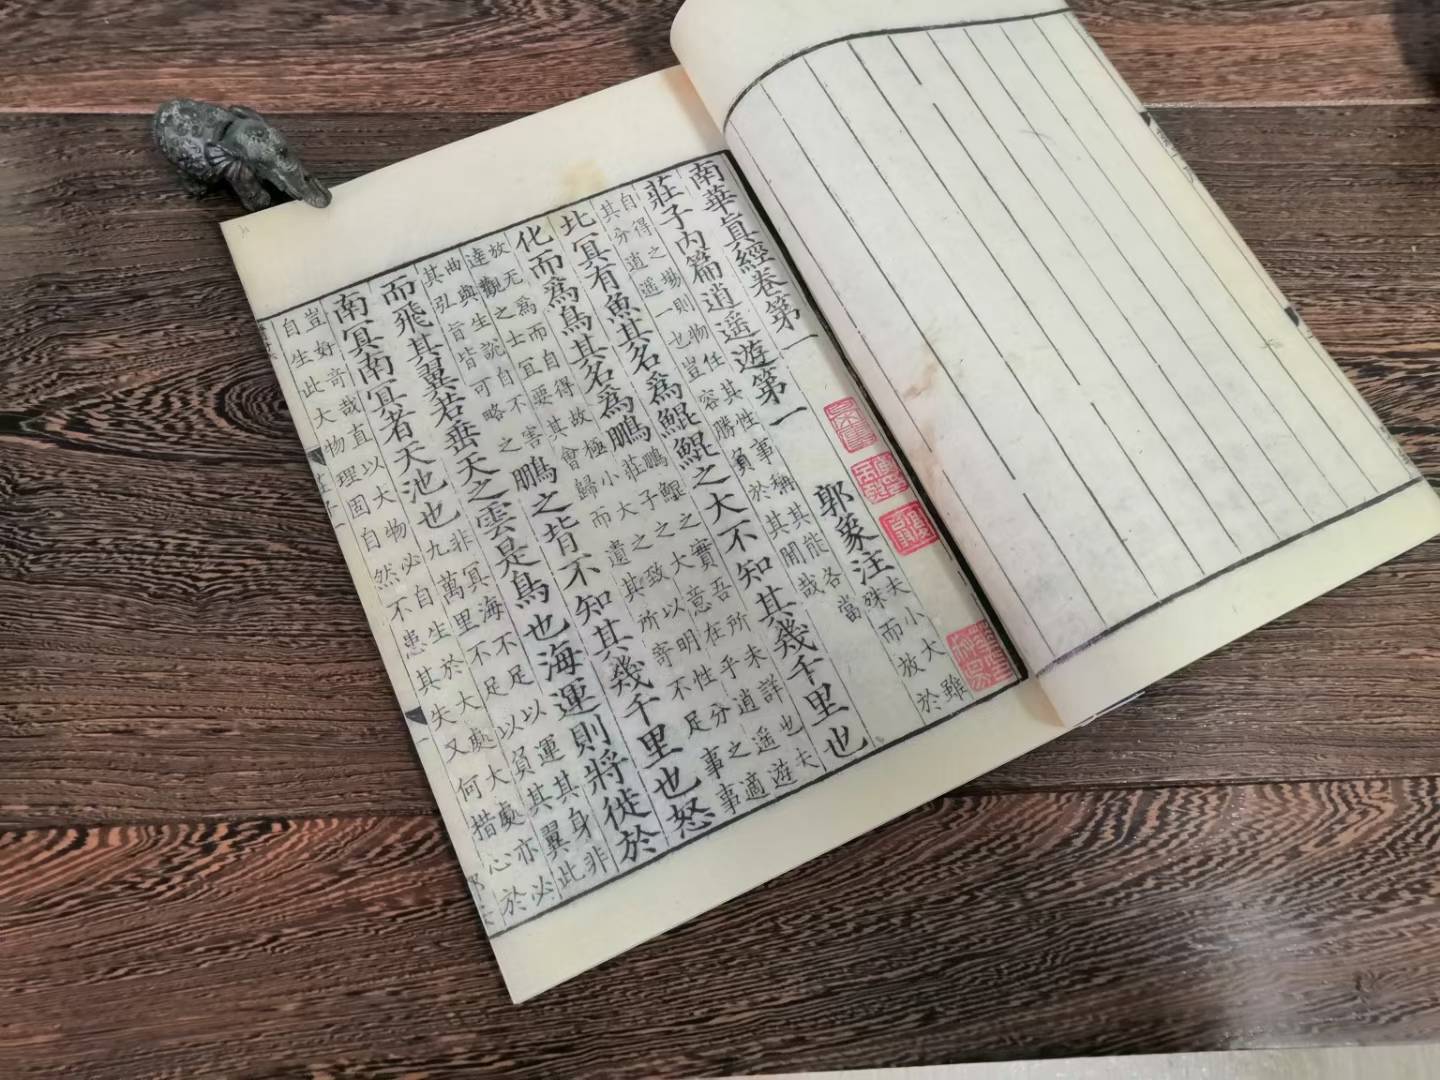 南華眞經卷第一
莊子內篇逍遥遊第一
郭象注
夫小大雖
殊而放於
自得之場則物任其性事稱其能各當
其分逍遥一也豈容勝負於其閒哉
北冥有魚其名爲鯤鯤之大不知其幾千里也
化而爲鳥其名爲鵬
鵬鯤之實吾所未詳也夫
莊子之大意在乎逍遥遊
放无爲而自得故極小大之致以明性分之適
達觀之士宜要其會歸而遺其所寄不足事事
曲與生說自不害
其弘旨皆可略之
鵬之背不知其幾千里也怒
而飛其翼若垂天之雲是鳥也海運則將徙於
南冥南冥者天池也
非冥海不足以運其身非
九萬里不足以負其翼此
豈好奇哉直以大物必自生於大處大處亦必
自生此大物理固自然不患其失又何措心於